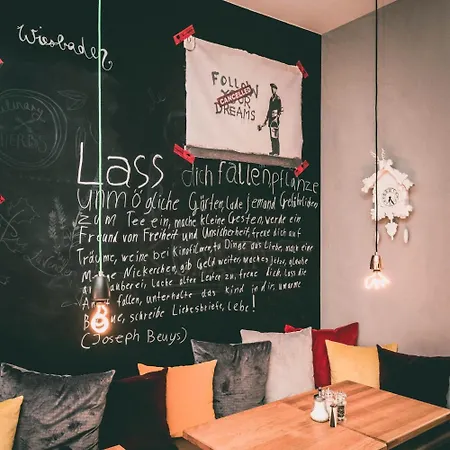 Wiesbaden
FOLLOW
YOUR
CANCELLED
DREAMS
Lass dich fallen, pflanze
unmögliche Gärten, lade jemand Gefährlichen
zum Tee ein, mache kleine Gesten, werde ein
Freund von Freiheit und Unsicherheit, freue dich auf
Träume, weine bei Kinofilmen, tu Dinge aus Liebe, mach eine
Nickerchen, gib Geld weiter, mach es jetzt, glaube
Zauberei, lache, alter, Lebe zu, freue dich, lass die
fallen, unterhalte das Kind in dir, umarme
Bäume, schreibe Liebesbriefe, Lebe!
(Joseph Beuys)